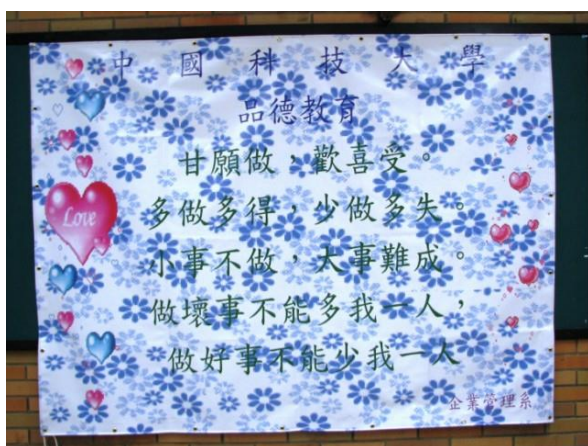 中國科技大學
品德教育
甘願做，歡喜受。
多做多得，少做多失。
小事不做，大事難成。
做壞事不能多我一人，
做好事不能少我一人
企業管理系
Love